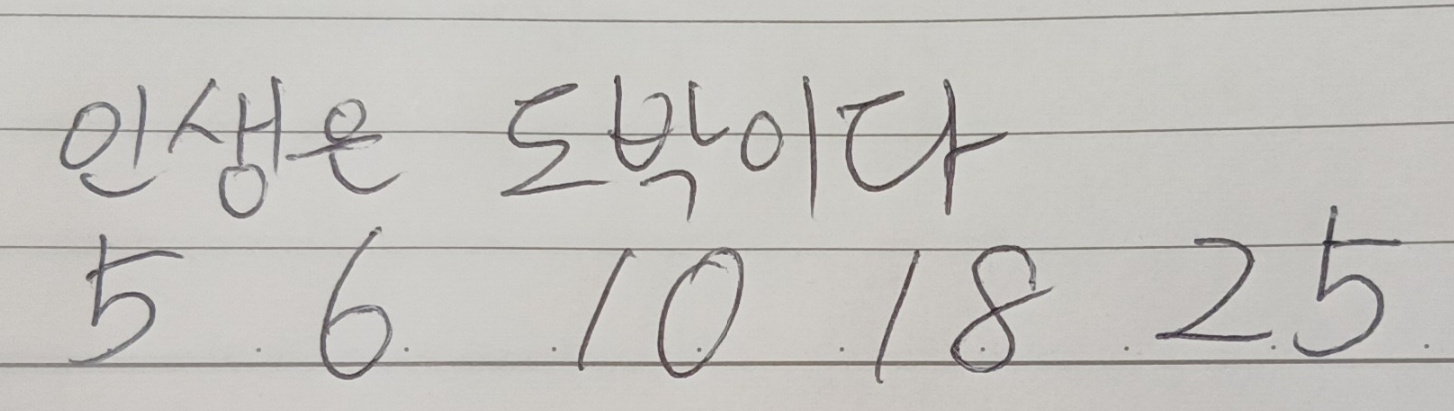 인생은 도박이다
5 6 10 18 25